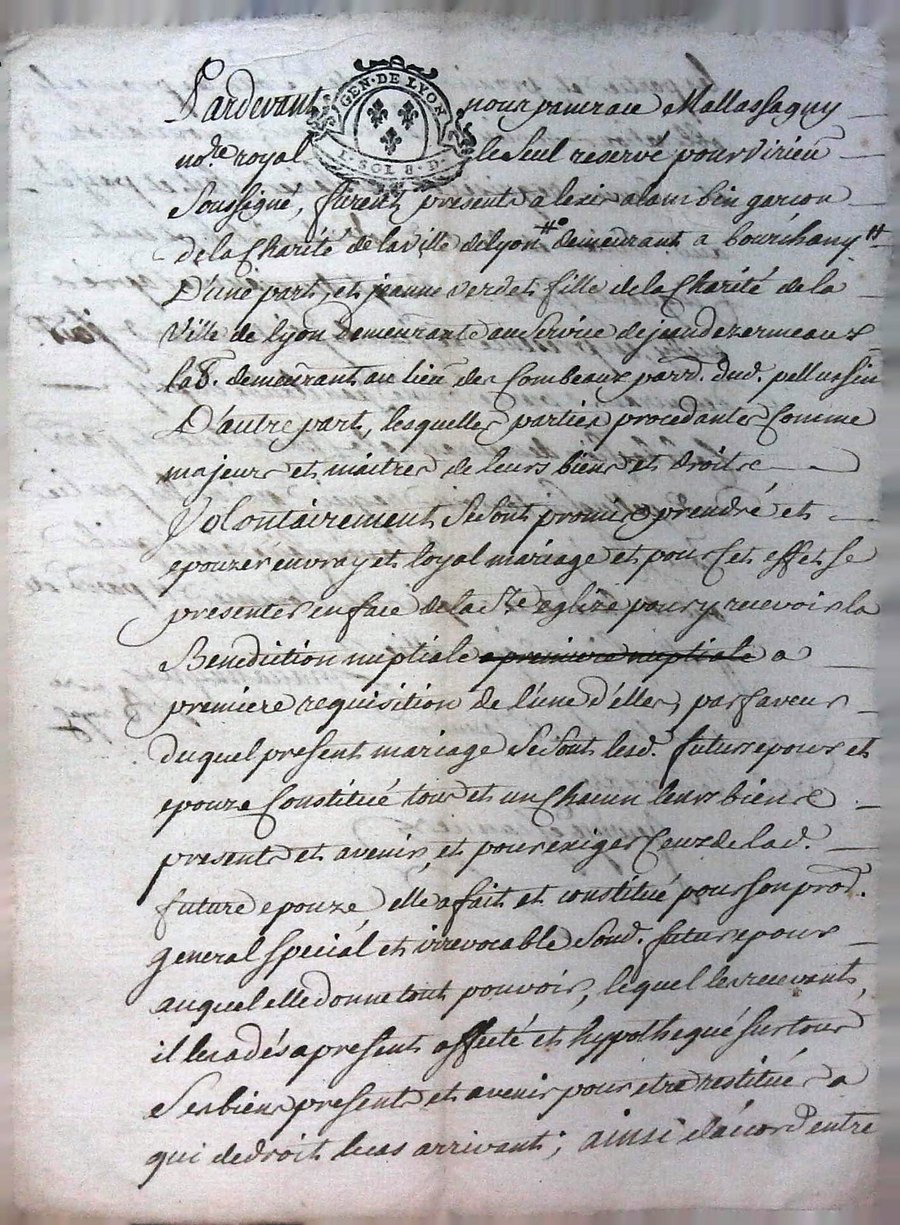 Pardevant nous
GEN · DE LYON
1 · SOL 8 · D
no.re royal le seul reservé pour virieu
Soussigné, furent presents alexis alain bin garcon
de la Charité de la ville de lyon demeurant a
D'une part, et jeanne verdet fille de la Charité de la
Ville de lyon demeurante au service de jean
lab.r demeurant au lieu des Combeaux parr. dud. pellussin
D'autre part, lesquelles parties procedantes Comme
majeurs et maitres de leurs biens et droits
Volontairement se sont promis prendre et
epouzer en vray et loyal mariage et pour Cet effet se
presenter en face de la Ste eglize pour y recevoir la
Benediction nuptiale a premiere nuptiale a
premiere requisition de l'une d'elles, par faveur
duquel present mariage se sont lesd. futurs epoux et
epouze Constitué tous et un Chacun leurs biens
presents et avenir, et pour exiger Ceux de lad.
future epouze, elle a fait et constitué pour son pro.r
general special et irrevocable Sond. futur epoux
auquel elle donne tout pouvoir, lequel les recevant,
il les a dés a present affecté et hypothequé sur tous
Ses biens presents et avenir pour etre restitués a
qui de droit le cas arrivant; ainsi d'accord entre